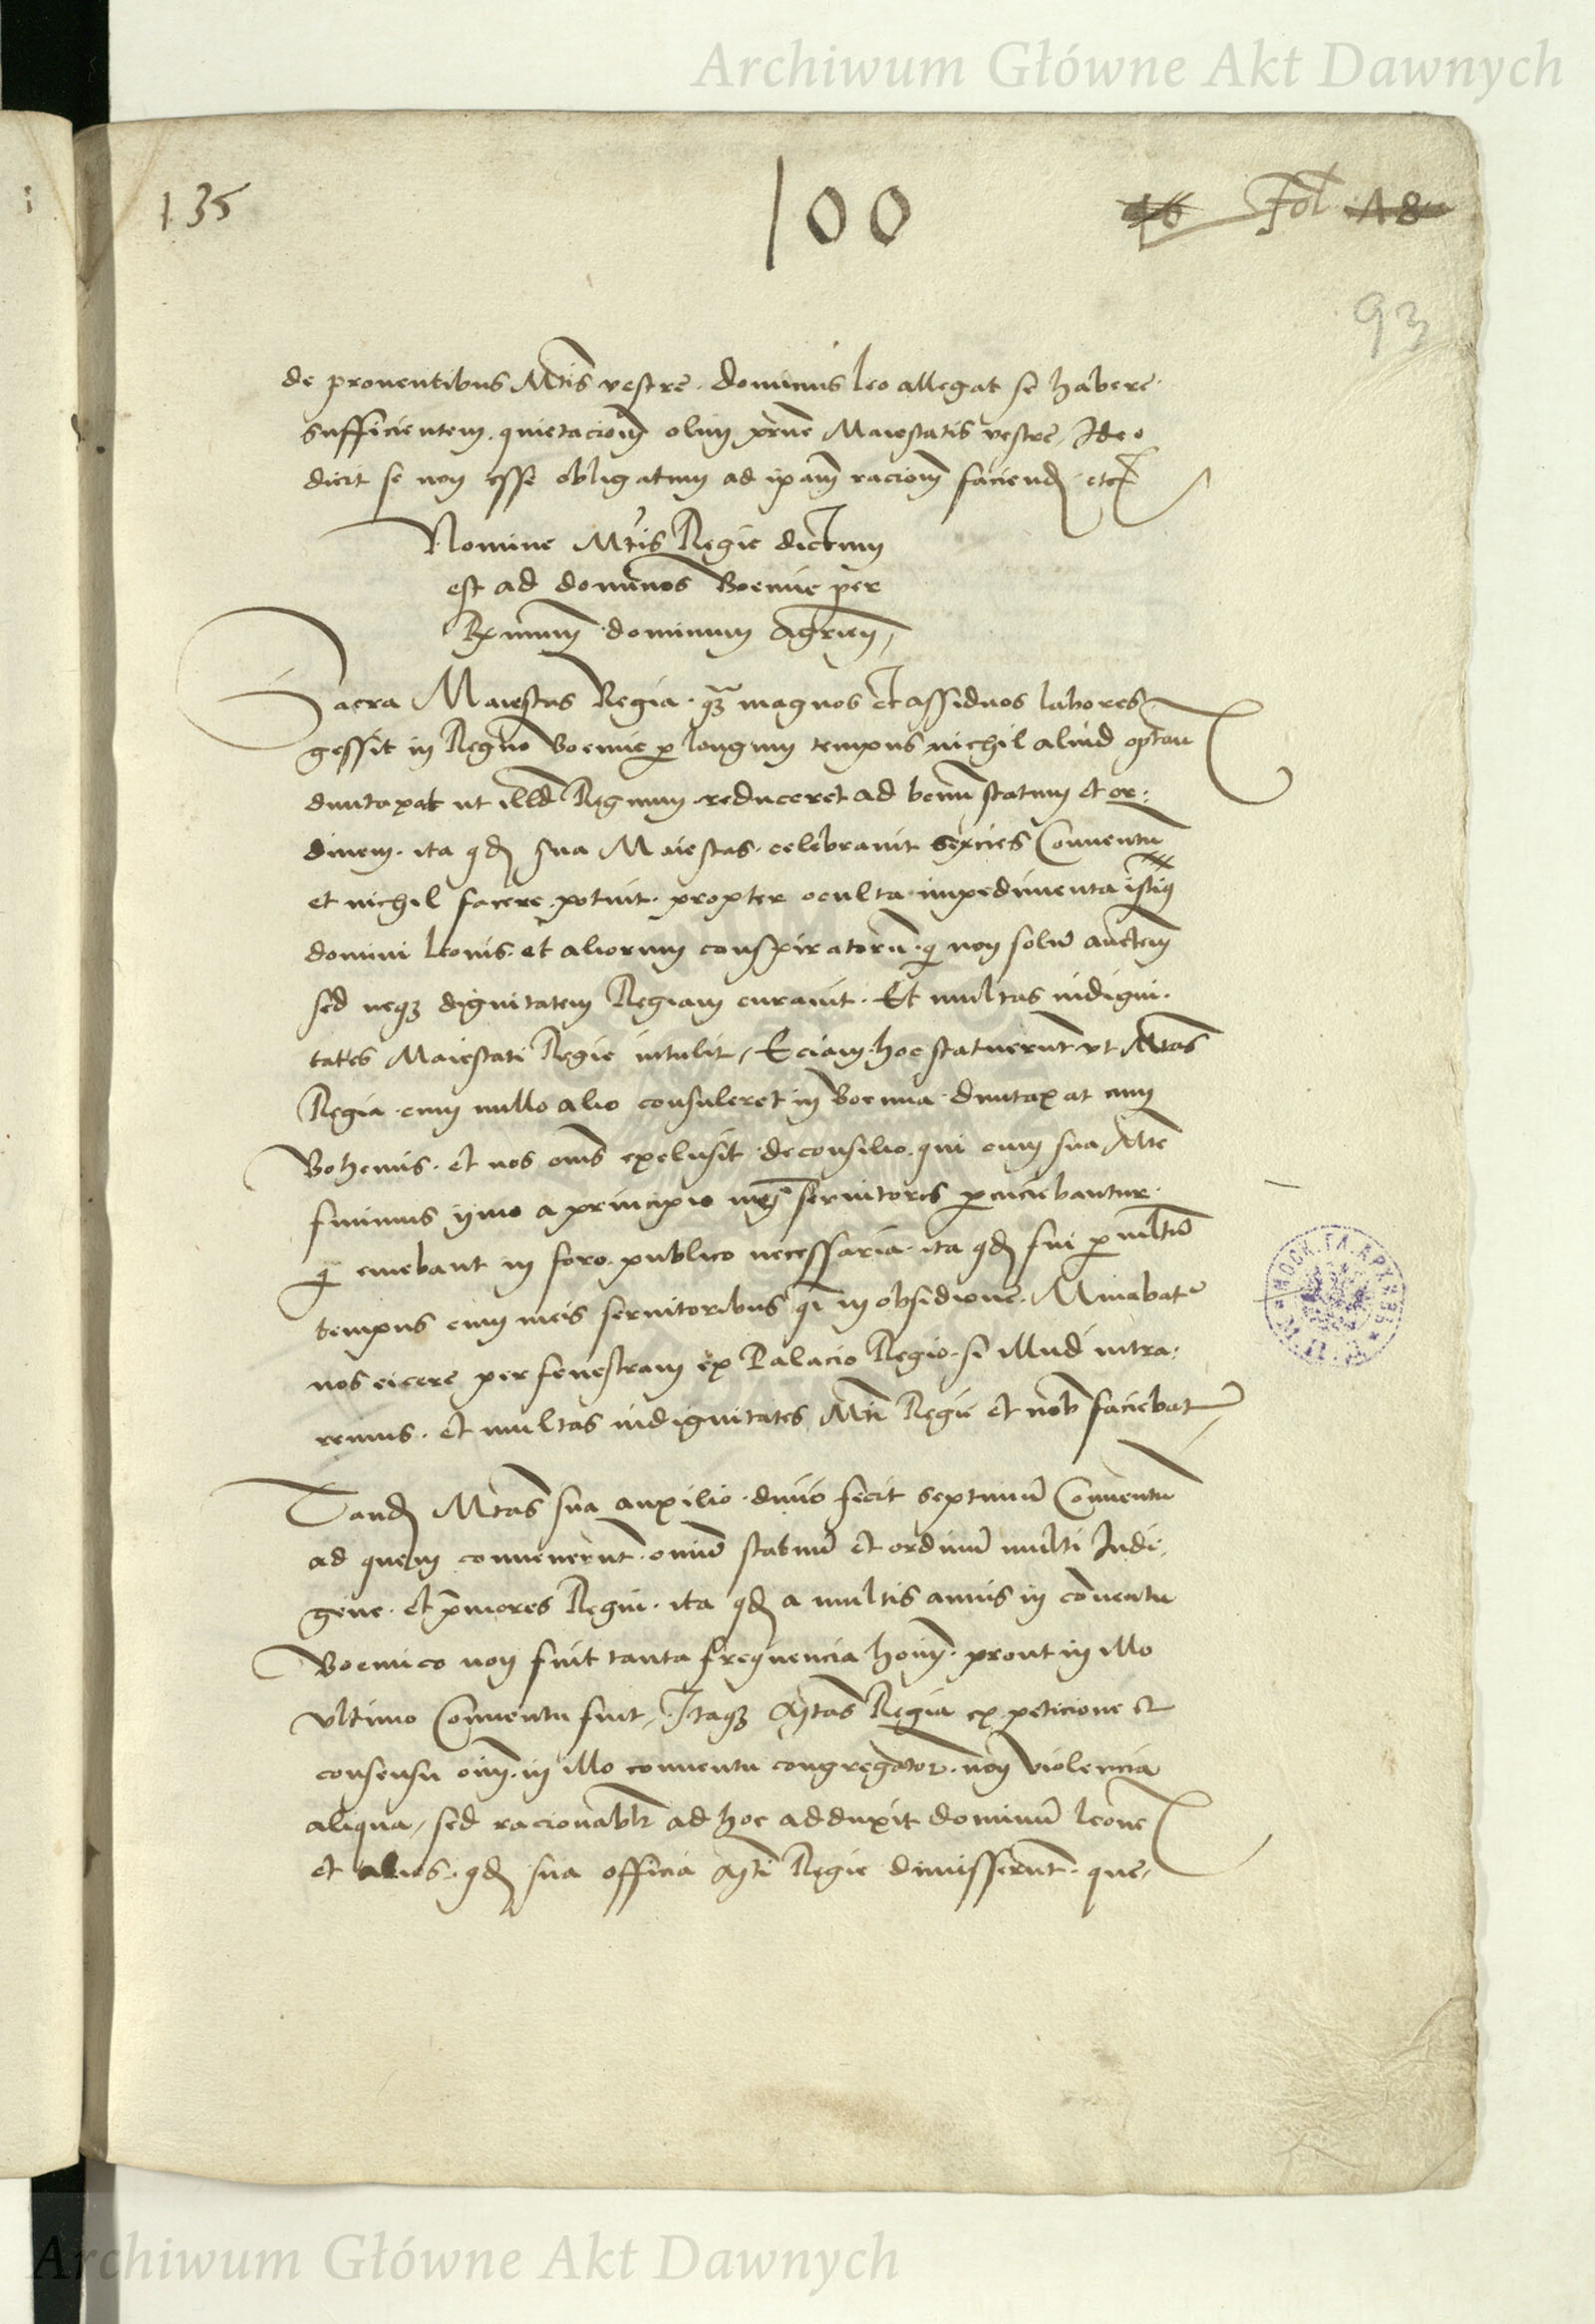 Archiwum Główne Akt Dawnych
135
100
Fol 18
93
de proventibus Mtis vestre. dominus leo allegat se habere
sufficientem. quietacionem olim prne Maiestatis vestre, Ideo
dicit se non esse obligatum ad ipam racionem faciend. etc
Nomine Mtis Regie dictum
est ad dominos Boemie per
Rmum dominum Agrien,
Sacra Maiestas Regia. q3 magnos et assiduos labores
gessit in Regno Boemie p longum tempus nichil aliud optan
duntaxat ut illd Regnum reduceret ad bonu statum et or:
dinem. ita qd sua Maiestas. celebravit sexcies Conventu
et nichil facere potuit. propter oculta impedimenta istius
domini leonis. et aliorum conspiratoru. qi non solu auctem
sed neq3 dignitatem Regiam curavit. Et multas indigni.
tates Maiestati Regie intulit, Eciam hoc statuerunt ut Mtas
Regia cum nullo alio consuleret in Boemia duntaxat cum
Bohemis. et nos oms exclusit de consilio. qui cum sua Mte
fuimus ymo a principio mei servitores pcuciebantur
qi emebant in foro publico necessaria. ita qd fui p multu
tempus cum meis servitoribus qi in obsidione. Minabatr
nos eicere per fenestram ex Palacio Regio. si illud intra:
remus. et multas indignitates Mti Regie et nob faciebat,
Tand Mtas sua auxilio divio fecit septimu Conventu
ad quem convenerunt. omiu statuu et ordinu multi Indi:
gene. et pmores Regni. ita qd a multis annis in conventu
Boemico non fuit tanta frequencia hoim. prout in illo
ultimo Conventu fuit, Itaq3 Mtas Regia ex peticione et
consensu oim. in illo conventu congregator. non violencia
aliqua, sed racionablr ad hoc adduxit dominu leone
et alios. qd sua officia Mti Regie dimisserunt. que,
Archiwum Główne Akt Dawnych